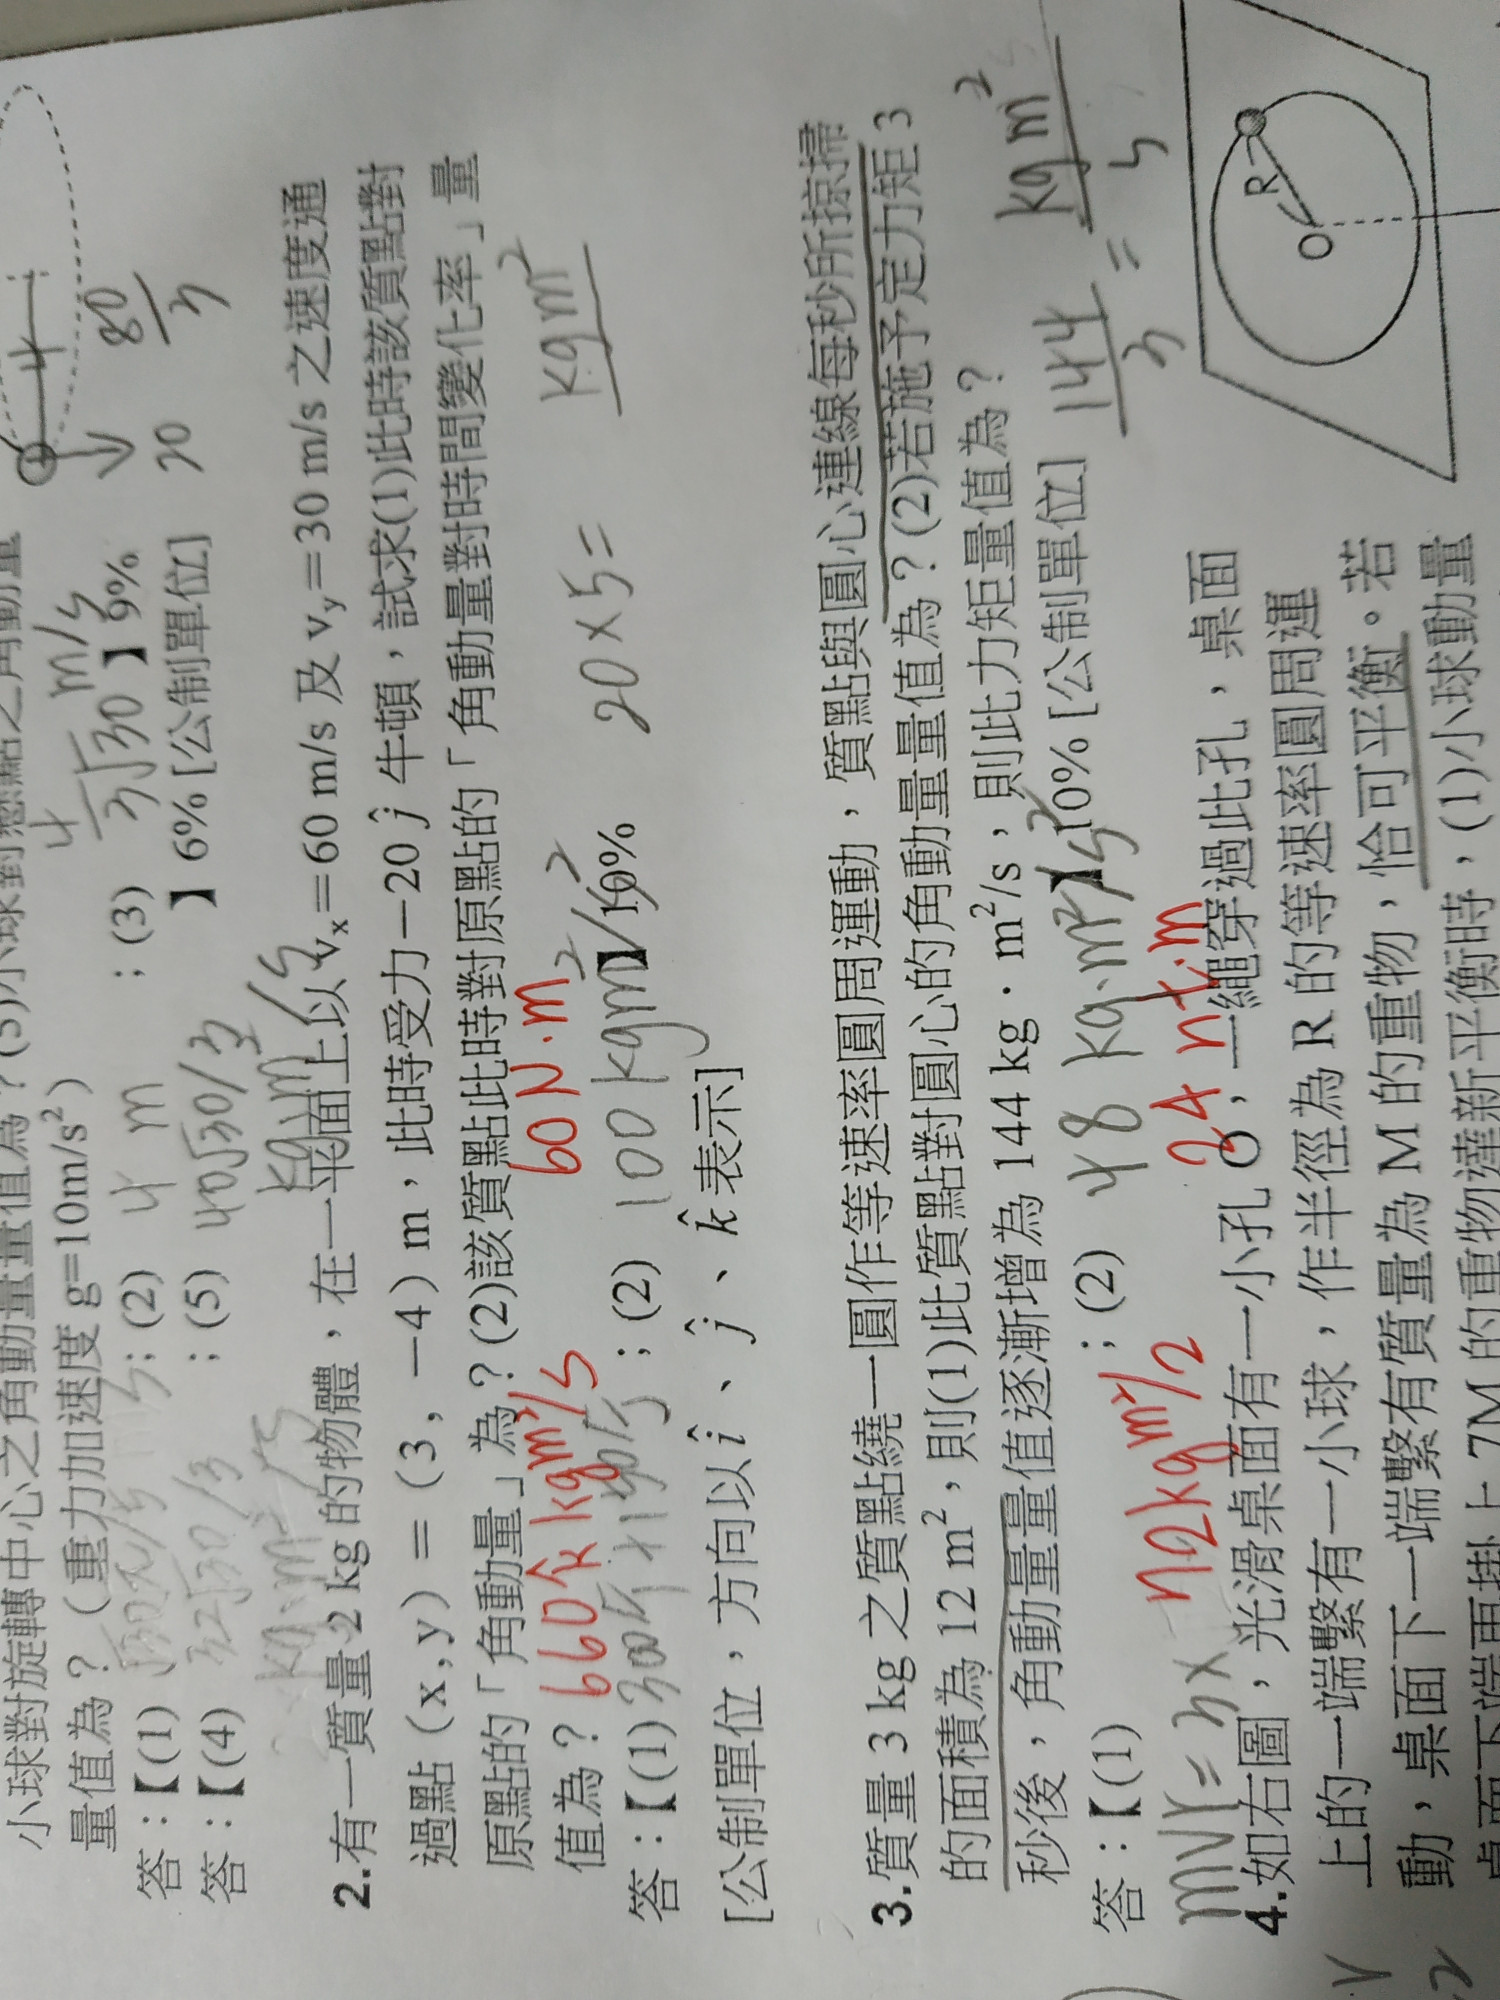 小球對旋轉中心之角動量量值為？(5)小球對懸點之角動量
量值為？（重力加速度 g=10m/s²）
答：【(1) ；(2) 4 m ；(3) 】9%
答：【(4) ；(5) 40√30/3 】6% [公制單位]
4
80
3
20
m/s
2.有一質量 2 kg 的物體，在一平面上以 vx＝60 m/s 及 vy＝30 m/s 之速度通
過點（x , y）＝（3 , －4）m，此時受力－20 ĵ 牛頓，試求(1)此時該質點對
原點的「角動量」為？(2)該質點此時對原點的「角動量對時間變化率」量
值為？ 660 k̂ kgm²/s 60 N·m kgm²
答：【(1) ；(2) 100 kgm²/s² 】10% 20×5=
[公制單位，方向以 î、ĵ、k̂ 表示]
3.質量 3 kg 之質點繞一圓作等速率圓周運動，質點與圓心連線每秒所掠掃
的面積為 12 m²，則(1)此質點對圓心的角動量量值為？(2)若施予定力矩 3
秒後，角動量量值逐漸增為 144 kg．m²/s，則此力矩量值為？
答：【(1) ；(2) 48 kg·m²/s² 】10% [公制單位] 144/3 = kgm²/s
72kgm²/2 24 nt·m
mVr = 3x
4.如右圖，光滑桌面有一小孔 O，一繩穿過此孔，桌面
上的一端繫有一小球，作半徑為 R 的等速率圓周運
動，桌面下一端繫有質量為 M 的重物，恰可平衡。若
桌面下端再掛上 7M 的重物達新平衡時，(1)小球動量
R
O